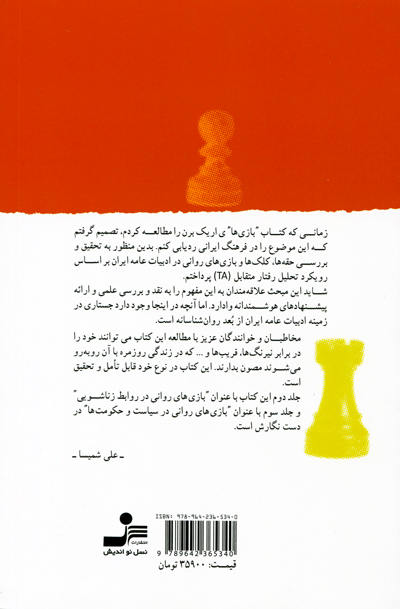 زمانی که کتاب "بازی‌ها" ی اریک برن را مطالعه کردم، تصمیم گرفتم
که این موضوع را در فرهنگ ایرانی ردیابی کنم. بدین منظور به تحقیق و
بررسی حقه‌ها، کلک‌ها و بازی‌های روانی در ادبیات عامه ایران بر اساس
رویکرد تحلیل رفتار متقابل (TA) پرداختم.
شاید این مبحث علاقه‌مندان به این مفهوم را به نقد و بررسی علمی و ارائه
پیشنهادهای هوشمندانه وادارد. اما آنچه در اینجا وجود دارد جستاری در
زمینه ادبیات عامه ایران از بُعد روان‌شناسانه است.
مخاطبان و خوانندگان عزیز با مطالعه این کتاب می توانند خود را
در برابر نیرنگ‌ها، فریب‌ها و ... که در زندگی روزمره با آن روبه‌رو
می‌شوند مصون بدارند. این کتاب در نوع خود قابل تأمل و تحقیق
است.
جلد دوم این کتاب با عنوان "بازی‌های روانی در روابط زناشویی"
و جلد سوم با عنوان "بازی‌های روانی در سیاست و حکومت‌ها" در
دست نگارش است.
ـ علی شمیسا ـ
ISBN: 978-964-236-534-0
9 789642 365340
انتشارات
نسل نو اندیش
قیمت: ۳۵۹۰۰ تومان